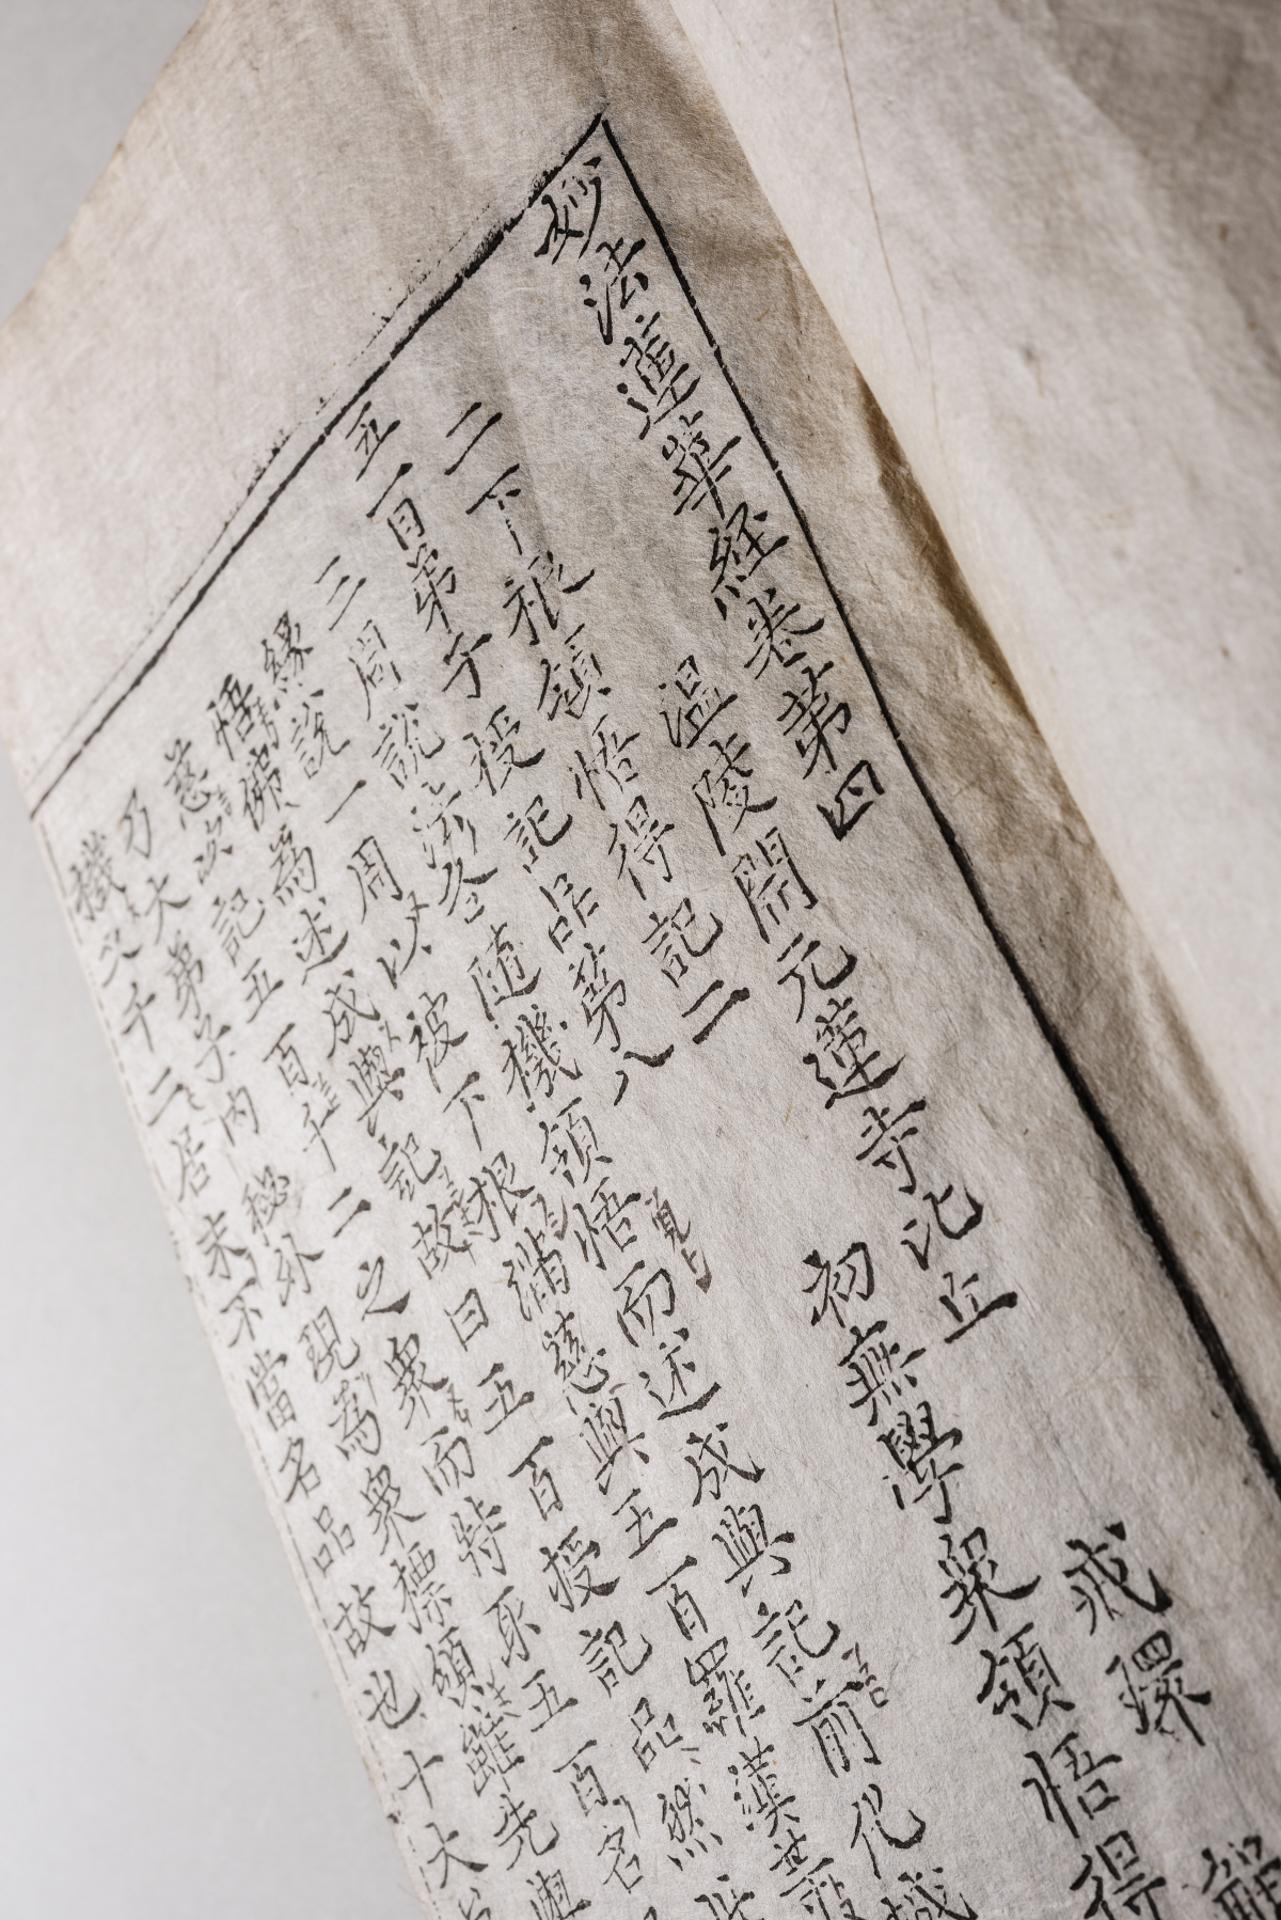 妙法蓮華經卷第四
溫陵開元蓮寺比丘 戒環 解
二下根領悟得記二 初無學衆領悟得
五百弟子授記品第八
三周說法各随機領悟而述成與記前化城
緣說一周以被下根滿慈與五百羅漢
悟佛爲述成與記故曰五百授記品然
慈次記五百千二之衆而特取五百名
乃大弟子內秘外現爲衆標領雖先與
機又千二居末不當名品故也十大